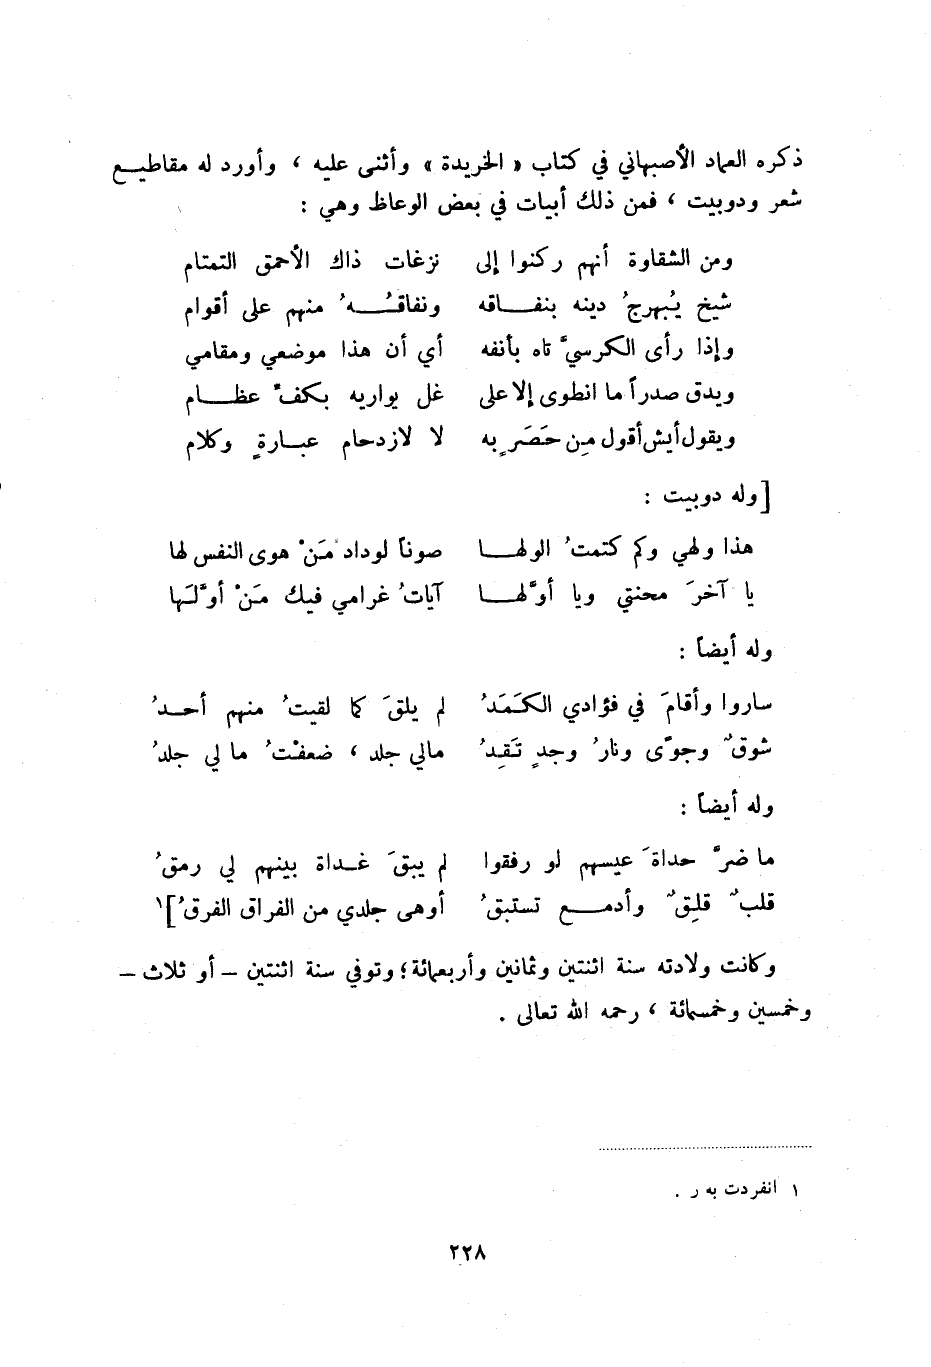 ذكره العماد الأصبهاني في كتاب « الخريدة » وأثنى عليه ، وأورد له مقاطيع
شعر ودوبيت ، فمن ذلك أبيات في بعض الوعاظ وهي :
ومن الشقاوة أنهم ركنوا إلى نزغات ذاك الأحمق التمتام
شيخ يُبهرجُ دينه بنفاقه ونفاقُهُ منهم على أقوام
وإذا رأى الكرسيَّ تاه بأنفه أي أن هذا موضعي ومقامي
ويدق صدراً ما انطوى إلا على غل يواريه بكفّ عظام
ويقول أيش أقول مِن حَصَرٍ به لا لازدحام عبارةٍ وكلام
[وله دوبيت :
هذا ولهي وكم كتمتُ الولها صوناً لوداد مَنْ هوى النفس لها
يا آخرَ محنتي ويا أوّلها آياتُ غرامي فيك مَنْ أوَّلَها
وله أيضاً :
ساروا وأقامَ في فؤادي الكَمَدُ لم يلقَ كما لقيتُ منهم أحدُ
شوقٌ وجوًى ونارُ وجدٍ تَقِدُ مالي جلد ، ضعفْتُ ما لي جلدُ
وله أيضاً :
ما ضرَّ حداةَ عيسهم لو رفقوا لم يبقَ غداة بينهم لي رمقُ
قلبٌ قلِقٌ وأدمع تستبقُ أوهى جلدي من الفراق الفرقُ]١
وكانت ولادته سنة اثنتين وثمانين وأربعمائة؛ وتوفي سنة اثنتين – أو ثلاث –
وخمسين وخمسمائة ، رحمه الله تعالى .
١ انفردت به ر .
٢٢٨